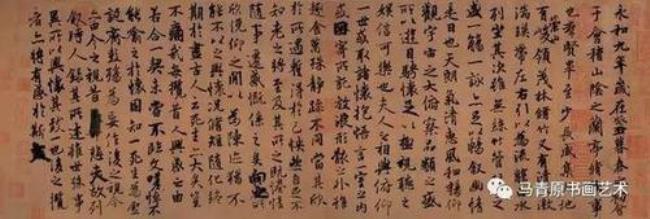 永和九年歲在癸丑暮春之初會
于會稽山陰之蘭亭脩禊事
也群賢畢至少長咸集此地
有崇山峻領茂林脩竹又有清流激
湍暎帶左右引以為流觴曲水
列坐其次雖無絲竹管弦之
盛一觴一詠亦足以暢敘幽情
是日也天朗氣清惠風和暢仰
觀宇宙之大俯察品類之盛
所以遊目騁懷足以極視聽之
娛信可樂也夫人之相與俯仰
一世或取諸懷抱悟言一室之內
或因寄所託放浪形骸之外雖
趣舍萬殊靜躁不同當其欣
於所遇蹔得於己怏然自足不
知老之將至及其所之既惓情
隨事遷感慨係之矣向之所
欣俛仰之閒以為陳迹猶不
能不以之興懷況脩短隨化終
期於盡古人云死生亦大矣豈
不痛哉每攬昔人興感之由
若合一契未嘗不臨文嗟悼不
能喻之於懷固知一死生為虛
誕齊彭殤為妄作後之視今
亦由今之視昔悲夫故列
敘時人錄其所述雖世殊事
異所以興懷其致一也後之攬
者亦將有感於斯文
马青原书画艺术